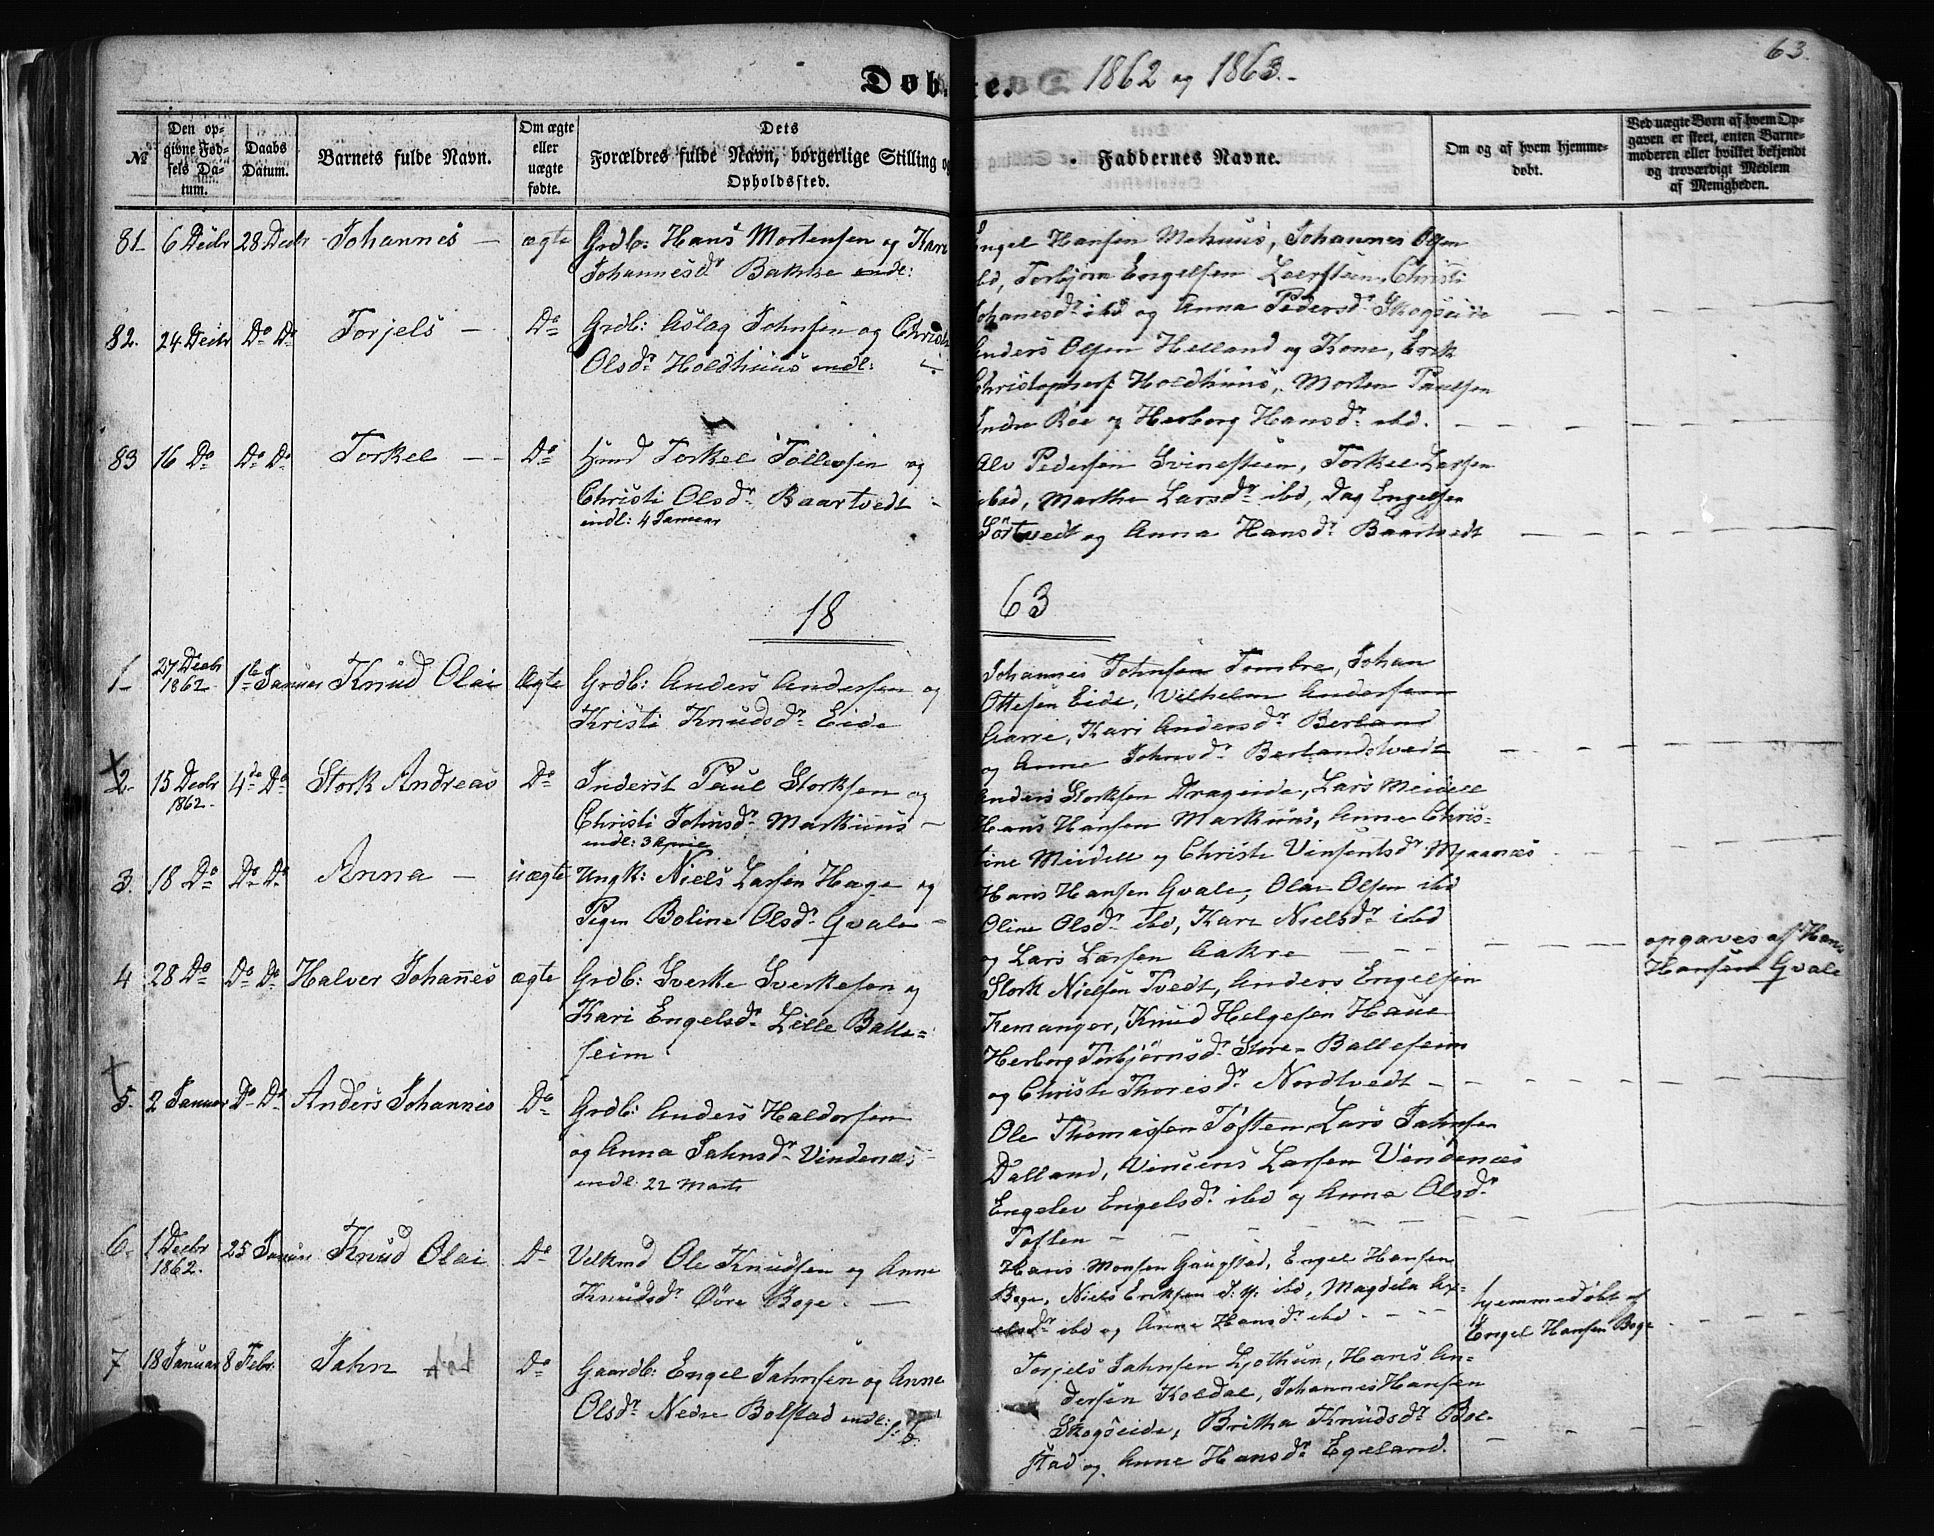 63.
Døbte. 1862 og 1863.
№
Den opgivne Fødsels Datum.
Daabs Datum.
Barnets fulde Navn.
Om ægte eller uægte fødte.
Dets Forældres fulde Navn, borgerlige Stilling og Opholdssted.
Faddernes Navne.
Om og af hvem hjemmedøbt.
Ved uægte Børn af hvem Opgaven er skeet, enten Barnemoderen eller hvilket bekjendt og troværdigt Medlem af Menigheden.
81 6 Decbr 28 Decbr Johannes – ægte Grdb: Hans Mortensen og Kari
Johannesdr Bakke indl:
Engel Hansen Mehuus, Johannes Olsen
ibd, Torbjørn Engelsen Leersteen, Christi
Johanesdr ibd og Anna Pedersdr Skogseide
82. 24 Decbr Do Do Torjels – Do Grdb: Aslag Johnsen og Christi
Olsdr Holdhuus indl:
Anders Olsen Helland og Kone, Erik
Christophers Holdhuus, Morten Paulsen
Indre Røe og Herborg Hansdr ibd.
83 16 Do Do Do Torkel – Do Hmd Torkel Tollevsen og
Christi Olsdr Baartvedt
indl: 4 Januar
Alv Pedersen Svinesteen, Torkel Larsen
ibd, Marthe Larsdr ibd, Dag Engelsen
Sørtvedt og Anna Hansdr Baartvedt
18 63
1 27 Decbr 1862 1te Januar Knud Olai Ægte Grdb: Anders Andersen og
Kristi Knudsdr Eide
Johannes Johnsen Tombre, Johan
Ottesen Eide, Vilhelm Andersen
Aarre, Kari Andersdr Berland
og Anna Johnsdr Berlandstvedt
2. 15 Decbr 1862. 4de Do Stork Andreas Do Inderst Paul Storksen og
Christi Johnsdr Markuus
indl: 3 April
Anders Storksen Drageide, Lars Meidell
Hans Hansen Markuus, Anne Chris-
tine Meidell og Christi Vinsentsdr Mjaanæs
3. 18 Do Do Do Anna – uægte Ungk: Niels Larsen Hage og
Pigen Boline Olsdr Gvale
Hans Hansen Gvale, Olai Olsen ibd
Oline Olsdr ibd, Kari Nielsdr ibd
og Lars Larsen Aakre
opgaves af Hans
Hansen Gvale
4 28 Do Do Do Halver Johannes ægte Grdb: Sverke Sverkesen og
Kari Engelsdr Lille Balle-
seim
Stork Nielsen Tvedt, Anders Engelsen
Remanger, Knud Helgesen Haue
Herborg Torbjørnsdr Store-Balleseim
og Christi Thoresdr Nordtvedt
5. 2 Januar Do Do Anders Johannes Do Grdb: Anders Haldorsen
og Anna Jahnsdr Vindenæs
indl: 22 Marts
Ole Thomassen Toften, Lars Jahnsen
Dalland, Vincens Larsen Vindenæs
Engelev Engelsdr ibd og Anna Olsdr
Toften
6. 1 Decbr 1862. 25 Januar Knud Olai Do Velkmd Ole Knudsen og Anne
Knudsdr Øvre Boge
Hans Monsen Gaugstad, Engel Hansen
Boge, Niels Eriksen ibd, Magdela Ax-
elsdr ibd og Anne Hansdr ibd
hjemmedøbt af
Engel Hansen Boge
7 18 Januar 8 Febr Jahn Do Gaardb: Engel Jahnsen og Anne
Olsdr Nedre Bolstad indl:
Torjels Jahnsen Ljothun, Hans An-
dersen Koldal, Johannes Hansen
Skogseide, Britha Knudsdr Bol-
stad og Anne Hansdr Egeland.